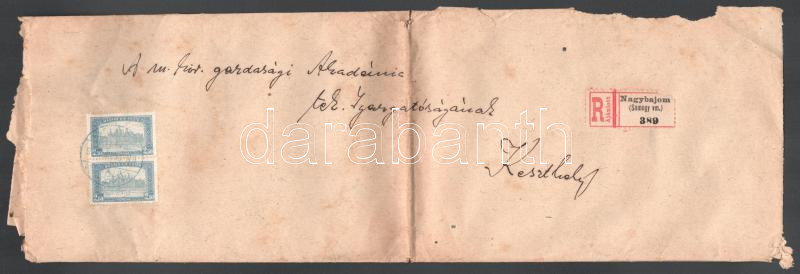 A m. kir. gazdasági Akadémia
tek. Igazgatóságának
Keszthely
R
Ajánlott
Nagybajom
(Somogy vm.)
389
darabanth